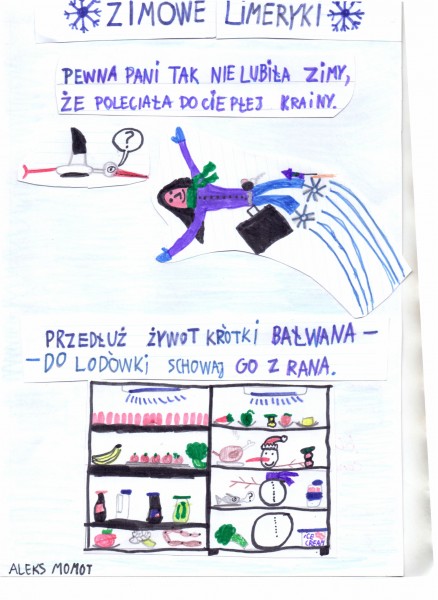 ZIMOWE LIMERYKI
PEWNA PANI TAK NIE LUBIŁA ZIMY,
ŻE POLECIAŁA DO CIEPŁEJ KRAINY.
?
PRZEDŁUŻ ŻYWOT KRÒTKI BAŁWANA –
– DO LODÒWKI SCHOWAJ GO Z RANA.
?
ICE
CREAM
ALEKS MOMOT